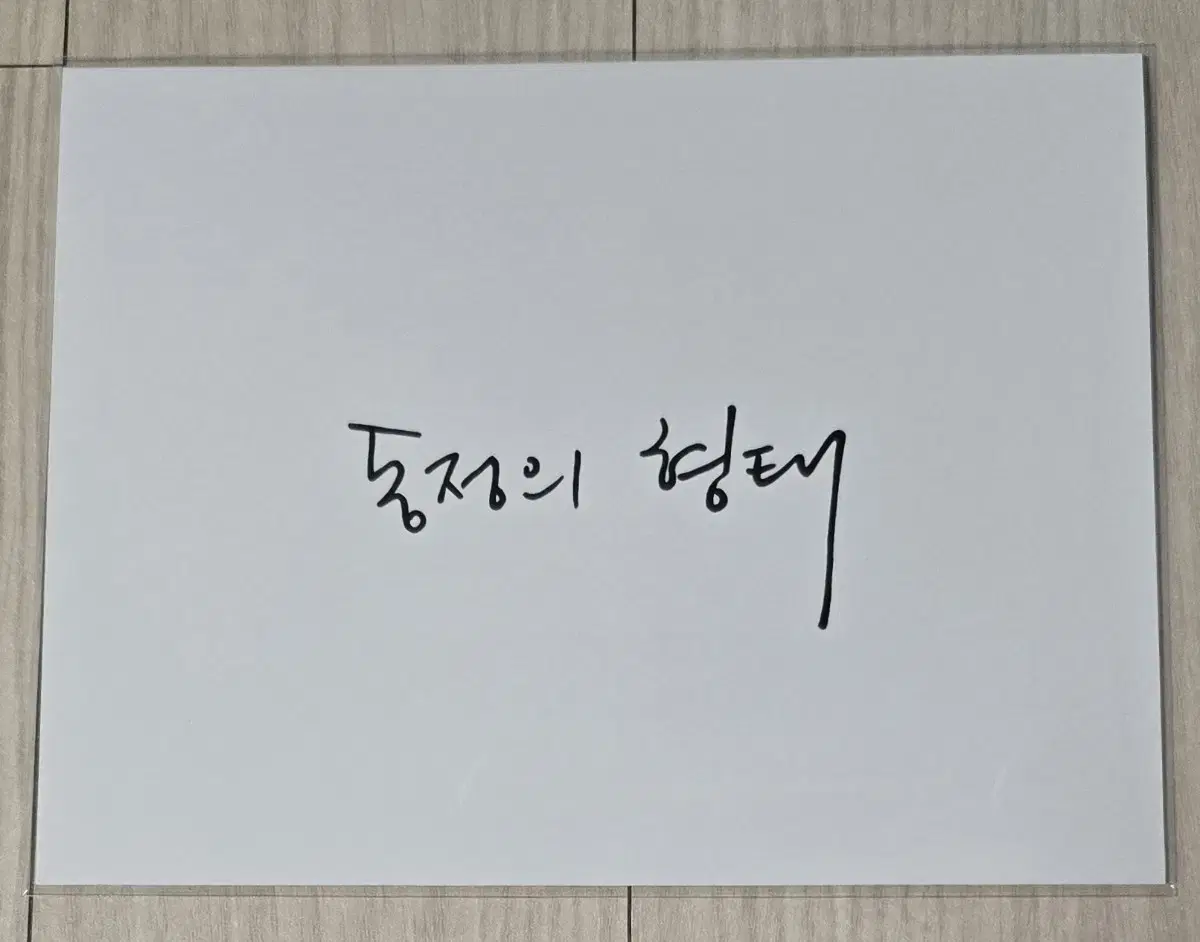 동정의 형태